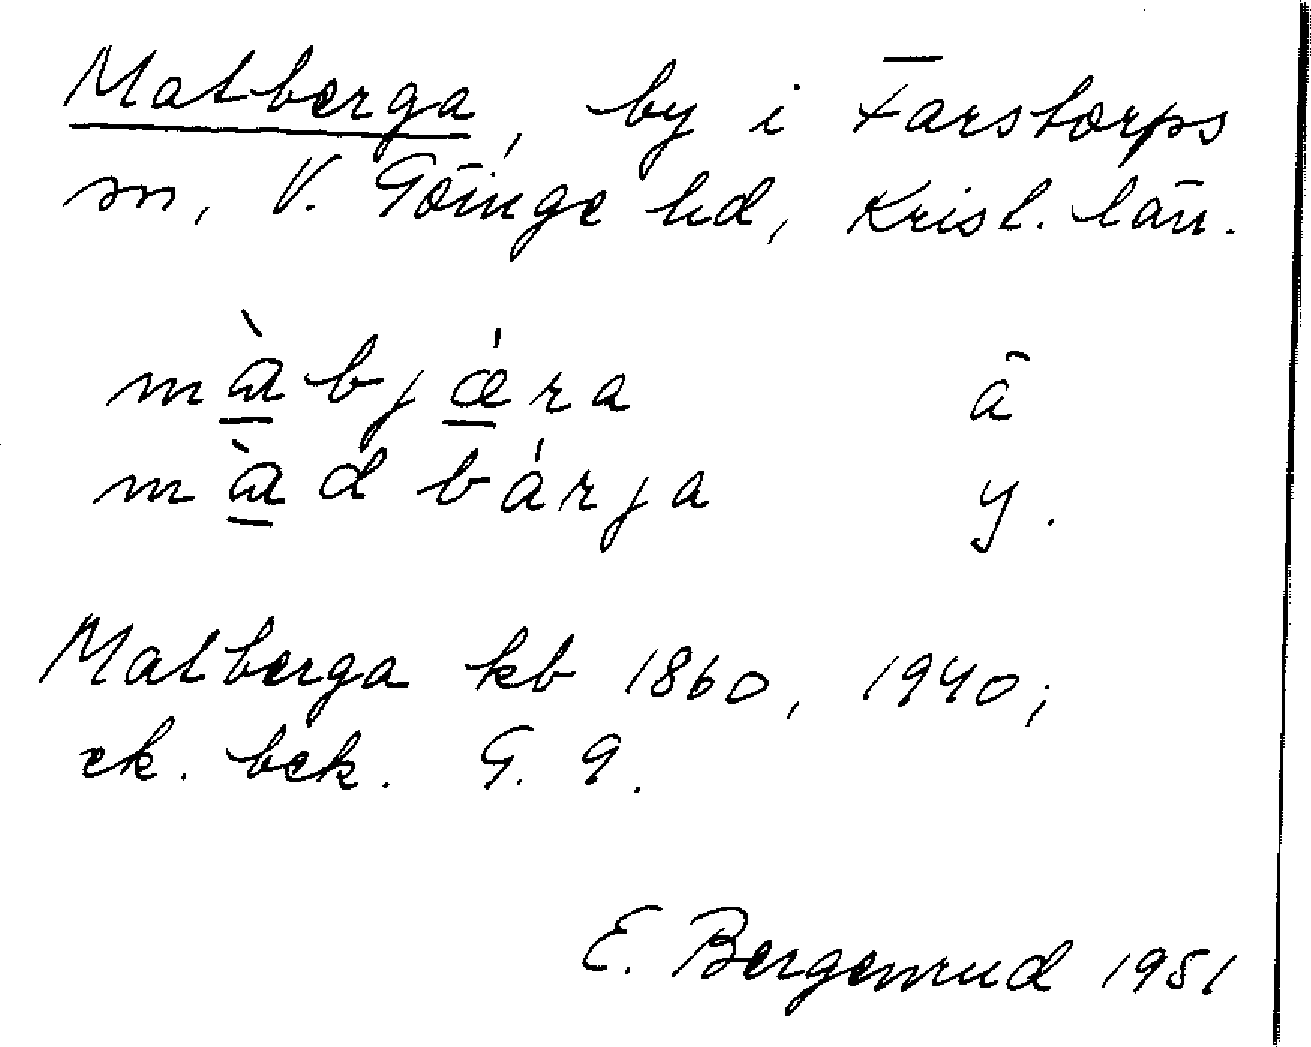 Matberga, by i Farstorps
sn, V. Göinge hd, Krist. län.
mɑ̀bjǽra ä
mɑ̀dbárja y.
Matberga kb 1860, 1940;
ek. bek. G. 9.
E. Bergenrud 1951